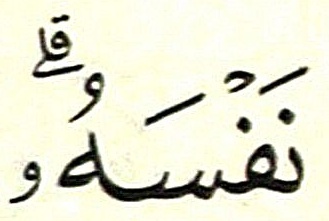 نَفۡسَهُۥۗ